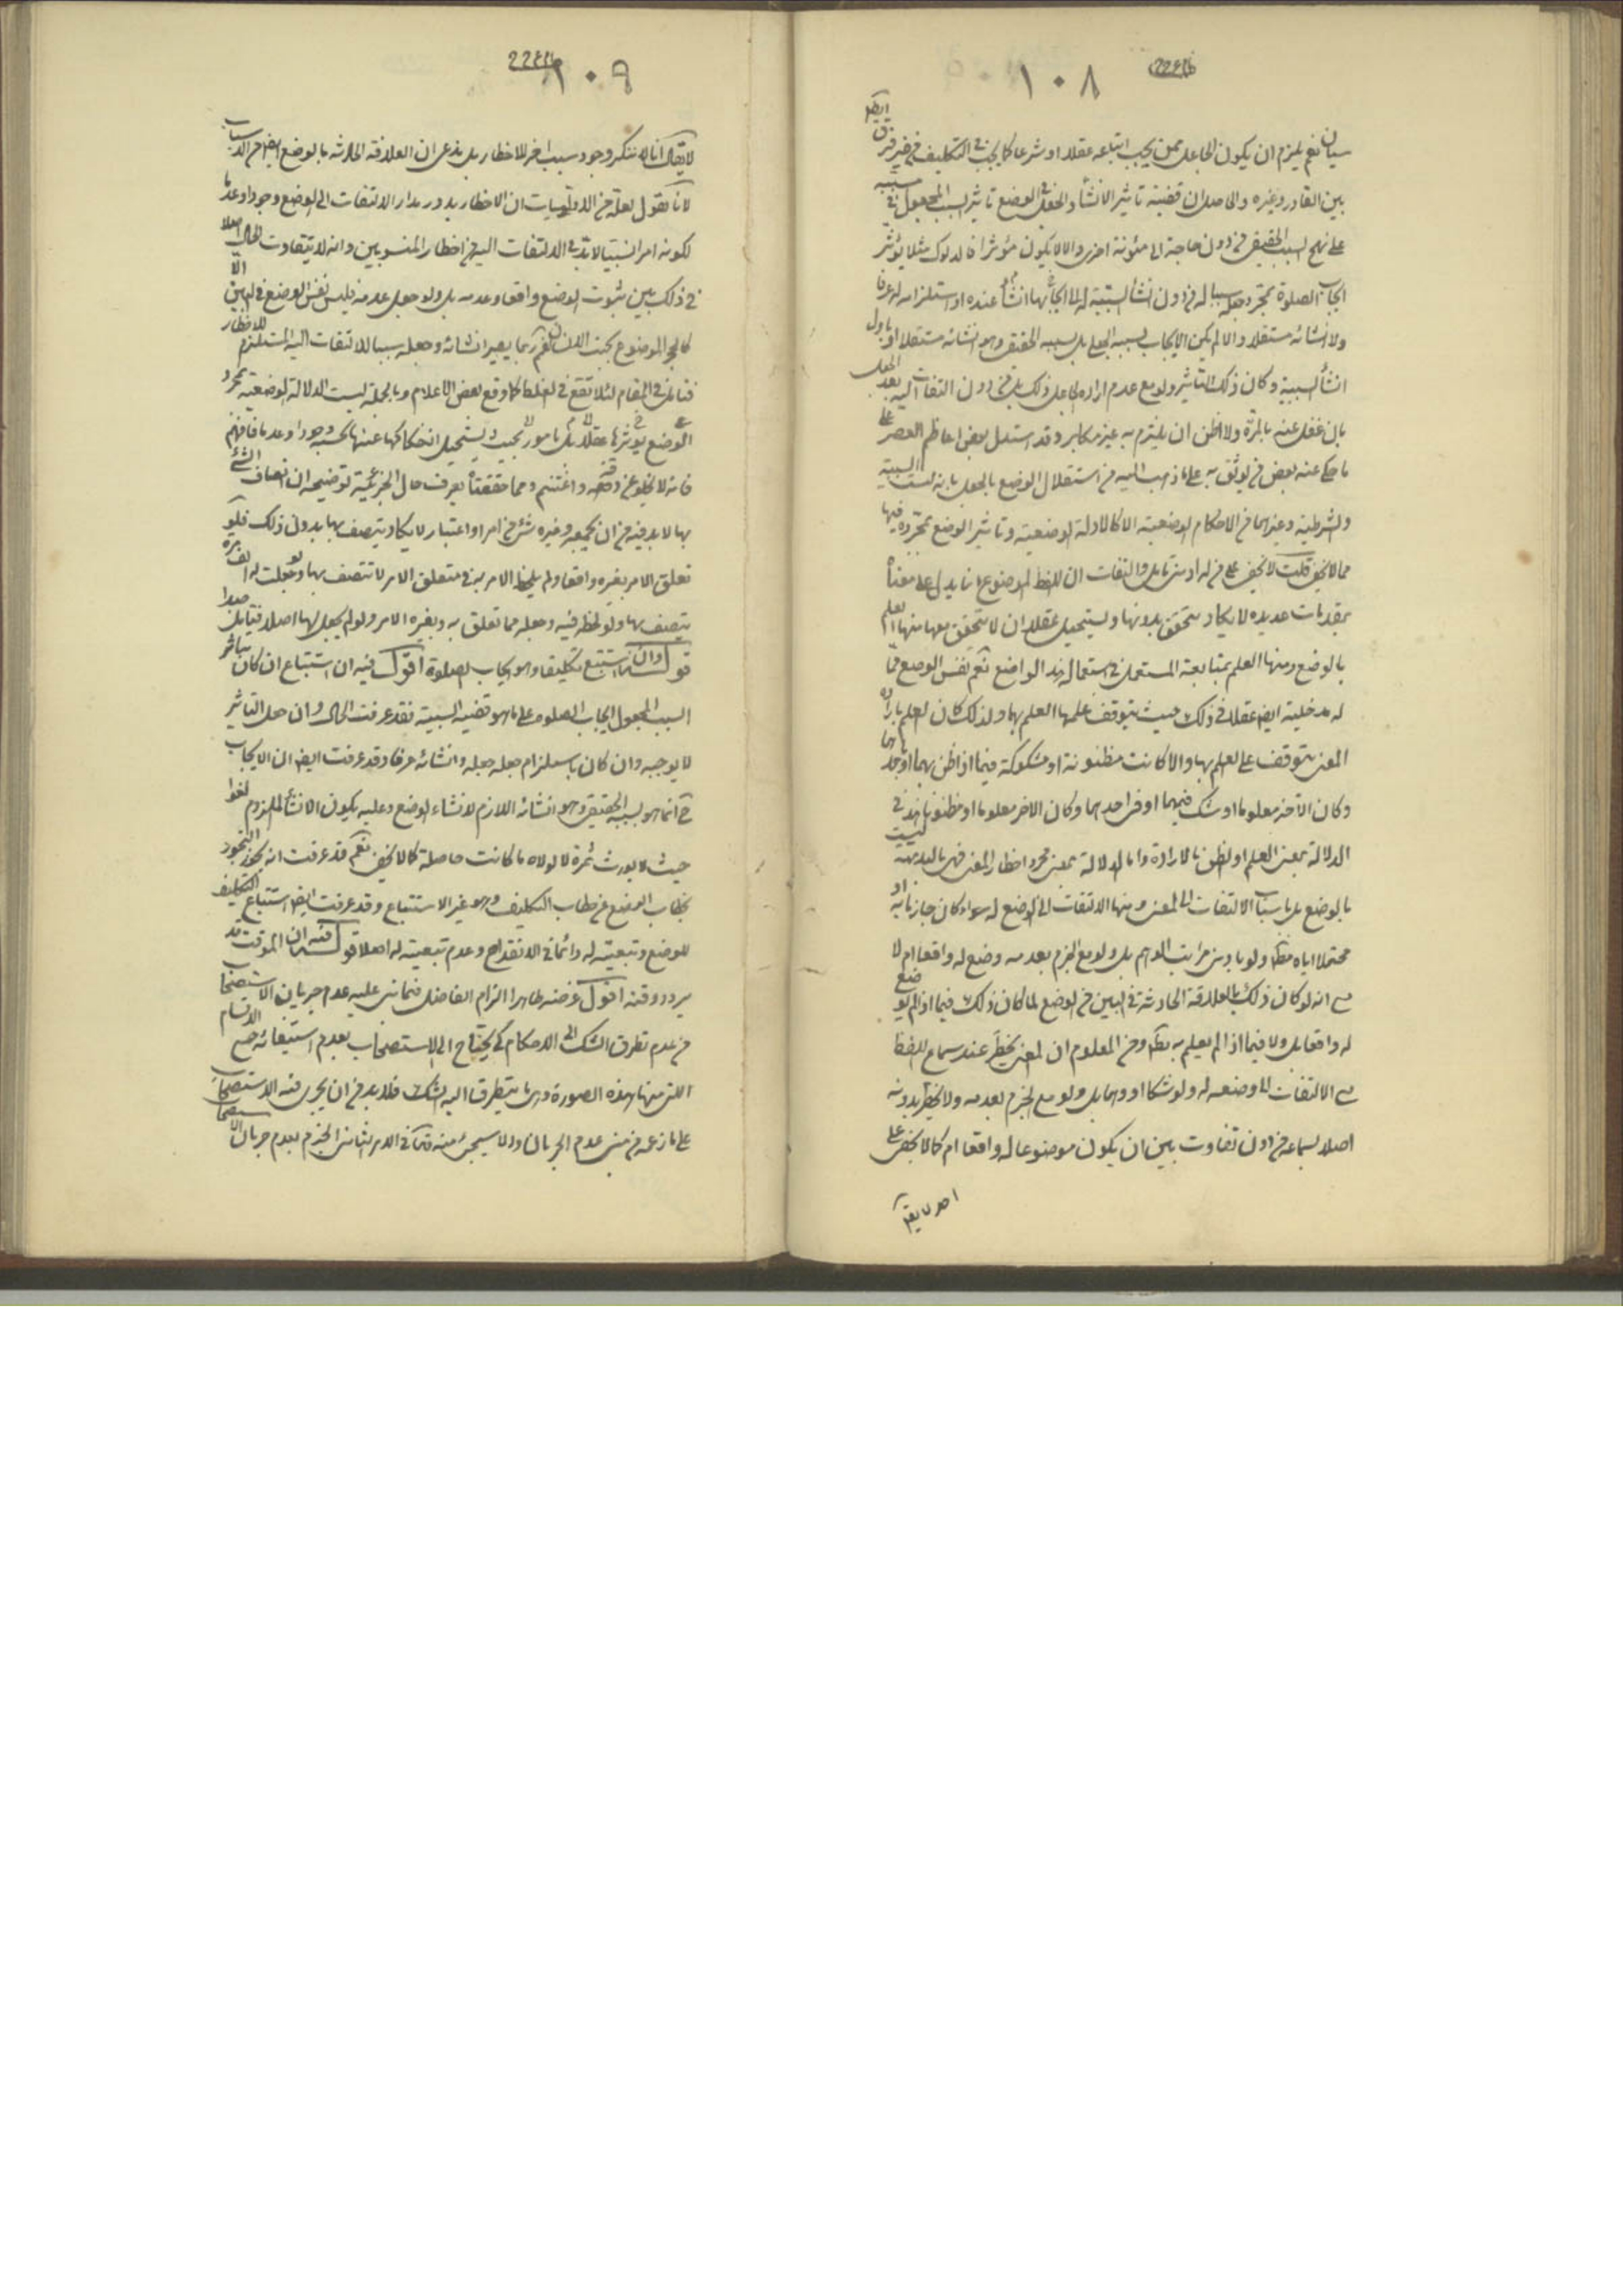 ١٠٨
سيان نعم يلزم ان يكون الجاعل ممن يجب اتباعه عقلا او شرعا كما يجب في التكليف من غير فرق ايضا
بين القادر وغيره والحاصل ان قضية تاثير الانشأ والجعل في الوضع تاثير السبب المجعول في مسببه
على نهج السبب الحقيقي من دون حاجة الى مئونة اخرى والا لا يكون مؤثرا فالدلوك مثلا يؤثر
ايجاب الصلوة بمجرد جعله سببا له من دون انشأ السببية له لا ايجابها انشأ عنده او استلزامه له عرفا
ولا انشائه مستقلا والا لم يكن الايجاب لسببه الجعلي بل بسببه الحقيقي وهو انشائه مستقلا او باول
انشأ السببية وكان ذلك التاثير ولو مع عدم ارادة الجاعل ذلك بل من دون التفات اليه بعد الجعل
بان غفل عنه بالمرة ولا اظن ان يلتزم به غير مكابر وقد استدل بعض اعاظم العصر على
ما حكى عنه بعض من يوثق به على ما ذهب اليه من استقلال الوضع بالجعل بانه ليست السببية
والشرطية وغيرهما من الاحكام الوضعية الا كالادلة الوضعية وتاثير الوضع بمجرده فيها
مما لا يخفى قلت لا يخفى على من له ادنى تامل والتفات ان اللفظ الموضوع انما يدل على معناه
بمقدمات عديدة لا يكاد يتحقق بدونها ويستحيل عقلا ان لا يتحقق معها منها العلم
بالوضع ومنها العلم بمتابعة المستعمل في استعماله هذا الواضع نعم نفس الوضع مما
له مدخلية ايضا عقلا في ذلك حيث يتوقف علمها العلم بها ولذلك كان العلم بارادة
المعنى يتوقف على العلم بها والا كانت مظنونة او مشكوكة فيما اذا ظن بهما او باحدهما
وكان الاخر معلوما او شك فيهما او في احدهما وكان الاخر معلوما او مظنونا هذا في
الدلالة بمعنى العلم او الظن بالارادة واما الدلالة بمعنى مجرد اخطار المعنى فهى بالبديهة ليست
بالوضع بل باسباب الالتفات الى المعنى ومنها الالتفات الى الوضع له سواء كان جازما به او
محتملا اياه مط ولو بادنى مراتب الوهم بل ولو مع الجزم بعدمه وضع له واقعا ام لا
مع انه لو كان ذلك بالعلاقة الحادثة في البين من الوضع لما كان ذلك فيما اذا لم يوضع
له واقعا بل ولا فيما اذا لم يعلم به مط ومن المعلوم ان المعنى يخطر عند سماع اللفظ
مع الالتفات الى وضعه له ولو شكا او وهما بل ولو مع الجزم بعدمه ولا يخطر بدونه
اصلا بسماعه من دون تفاوت بين ان يكون موضوعا له واقعا ام كما لا يخفى على
احد لا يقال
١٠٩
لا يقال انا لا ننكر وجود سبب اخر للاخطار بل ندعى ان العلاقة الحادثة بالوضع ايضا من الاسباب
لانا نقول لعله من الاوليات ان الاخطار يدور مدار الالتفات الى الوضع وجودا وعدما
لكونه امرا نسبيا لا بد في الالتفات اليه من اخطار المنسوبين وانه لا يتفاوت الحال اصلا
في ذلك بين ثبوت الوضع واقعا وعدمه بل ولو جعل عدمه فليس نفس الوضع في البين الا
كالحجر الموضوع بجنب الانسان نعم ربما يصير انشائه وجعله سببا للالتفات اليه المستلزم للاخطار
فتامل في المقام لئلا تقع في الغلط كما وقع بعض الاعلام وبالجملة ليست الدلالة الوضعية بمجرد
الوضع يؤثرها عقلا بل بامور بحيث يستحيل انفكاكها عنها بحسبه وجودا وعدما فافهم
فانه لا يخلو عن دقة واغتنم ومما حققناه يعرف حال الجزئية توضيحه ان اتصاف الشئ
بها لا بد فيه من ان يجمعه وغيره شئ من امر او اعتبار لا يكاد يتصف بها بدون ذلك فلو
تعلق الامر بغيره واقعا ولم يلحظ الامر به في متعلق الامر لا تتصف بها ولو جعلت له الف مرة
يتصف بها ولو لحظه فيه وجعله مما تعلق به وبغيره الامر ولو لم يجعل لها اصلا فتامل جيدا
قوله وان استتبع تكليفا وهو ايجاب الصلوة اقول فيه ان استتباع ان كان بتاثير
السبب المجعول ايجاب الصلوة على ما هو قضية السببية فقد عرفت الحال وان جعل التاثير
لا يوجبه وان كان باستلزام جعله جعله وانشائه عرفا وقد عرفت ايضا ان الايجاب
ح انما هو بسببه الحقيقي وهو انشائه اللازم لانشاء الوضع وعليه يكون الانشأ الملزوم لغوا
حيث لا يورث ثمرة لا لولاه ما كانت حاصلة كما لا يخفى نعم قد عرفت انه يجوز التجوز
بخطاب الوضع عن خطاب التكليف وهو غير الاستتباع وقد عرفت ايضا استتباع التكليف
للوضع وتبعيته له دائما في الانقداح وعدم تبعيته له اصلا قوله فيه ان الموقت قد
يردد وقته اقول غرضه ظاهرا الزام الفاضل فيما بنى عليه عدم جريان الاستصحاب
من عدم تطرق الشك الى الاحكام كى يحتاج الى الاستصحاب بعدم استيفائه جميع الاقسام
التي منها هذه الصورة وهى ما يتطرق اليه الشك فلا بد من ان يجرى فيه الاستصحاب
على ما زعمه من مبنى عدم الجريان والا سيجئ منه في الامر الثاني الجزم بعدم جريان الاستصحاب